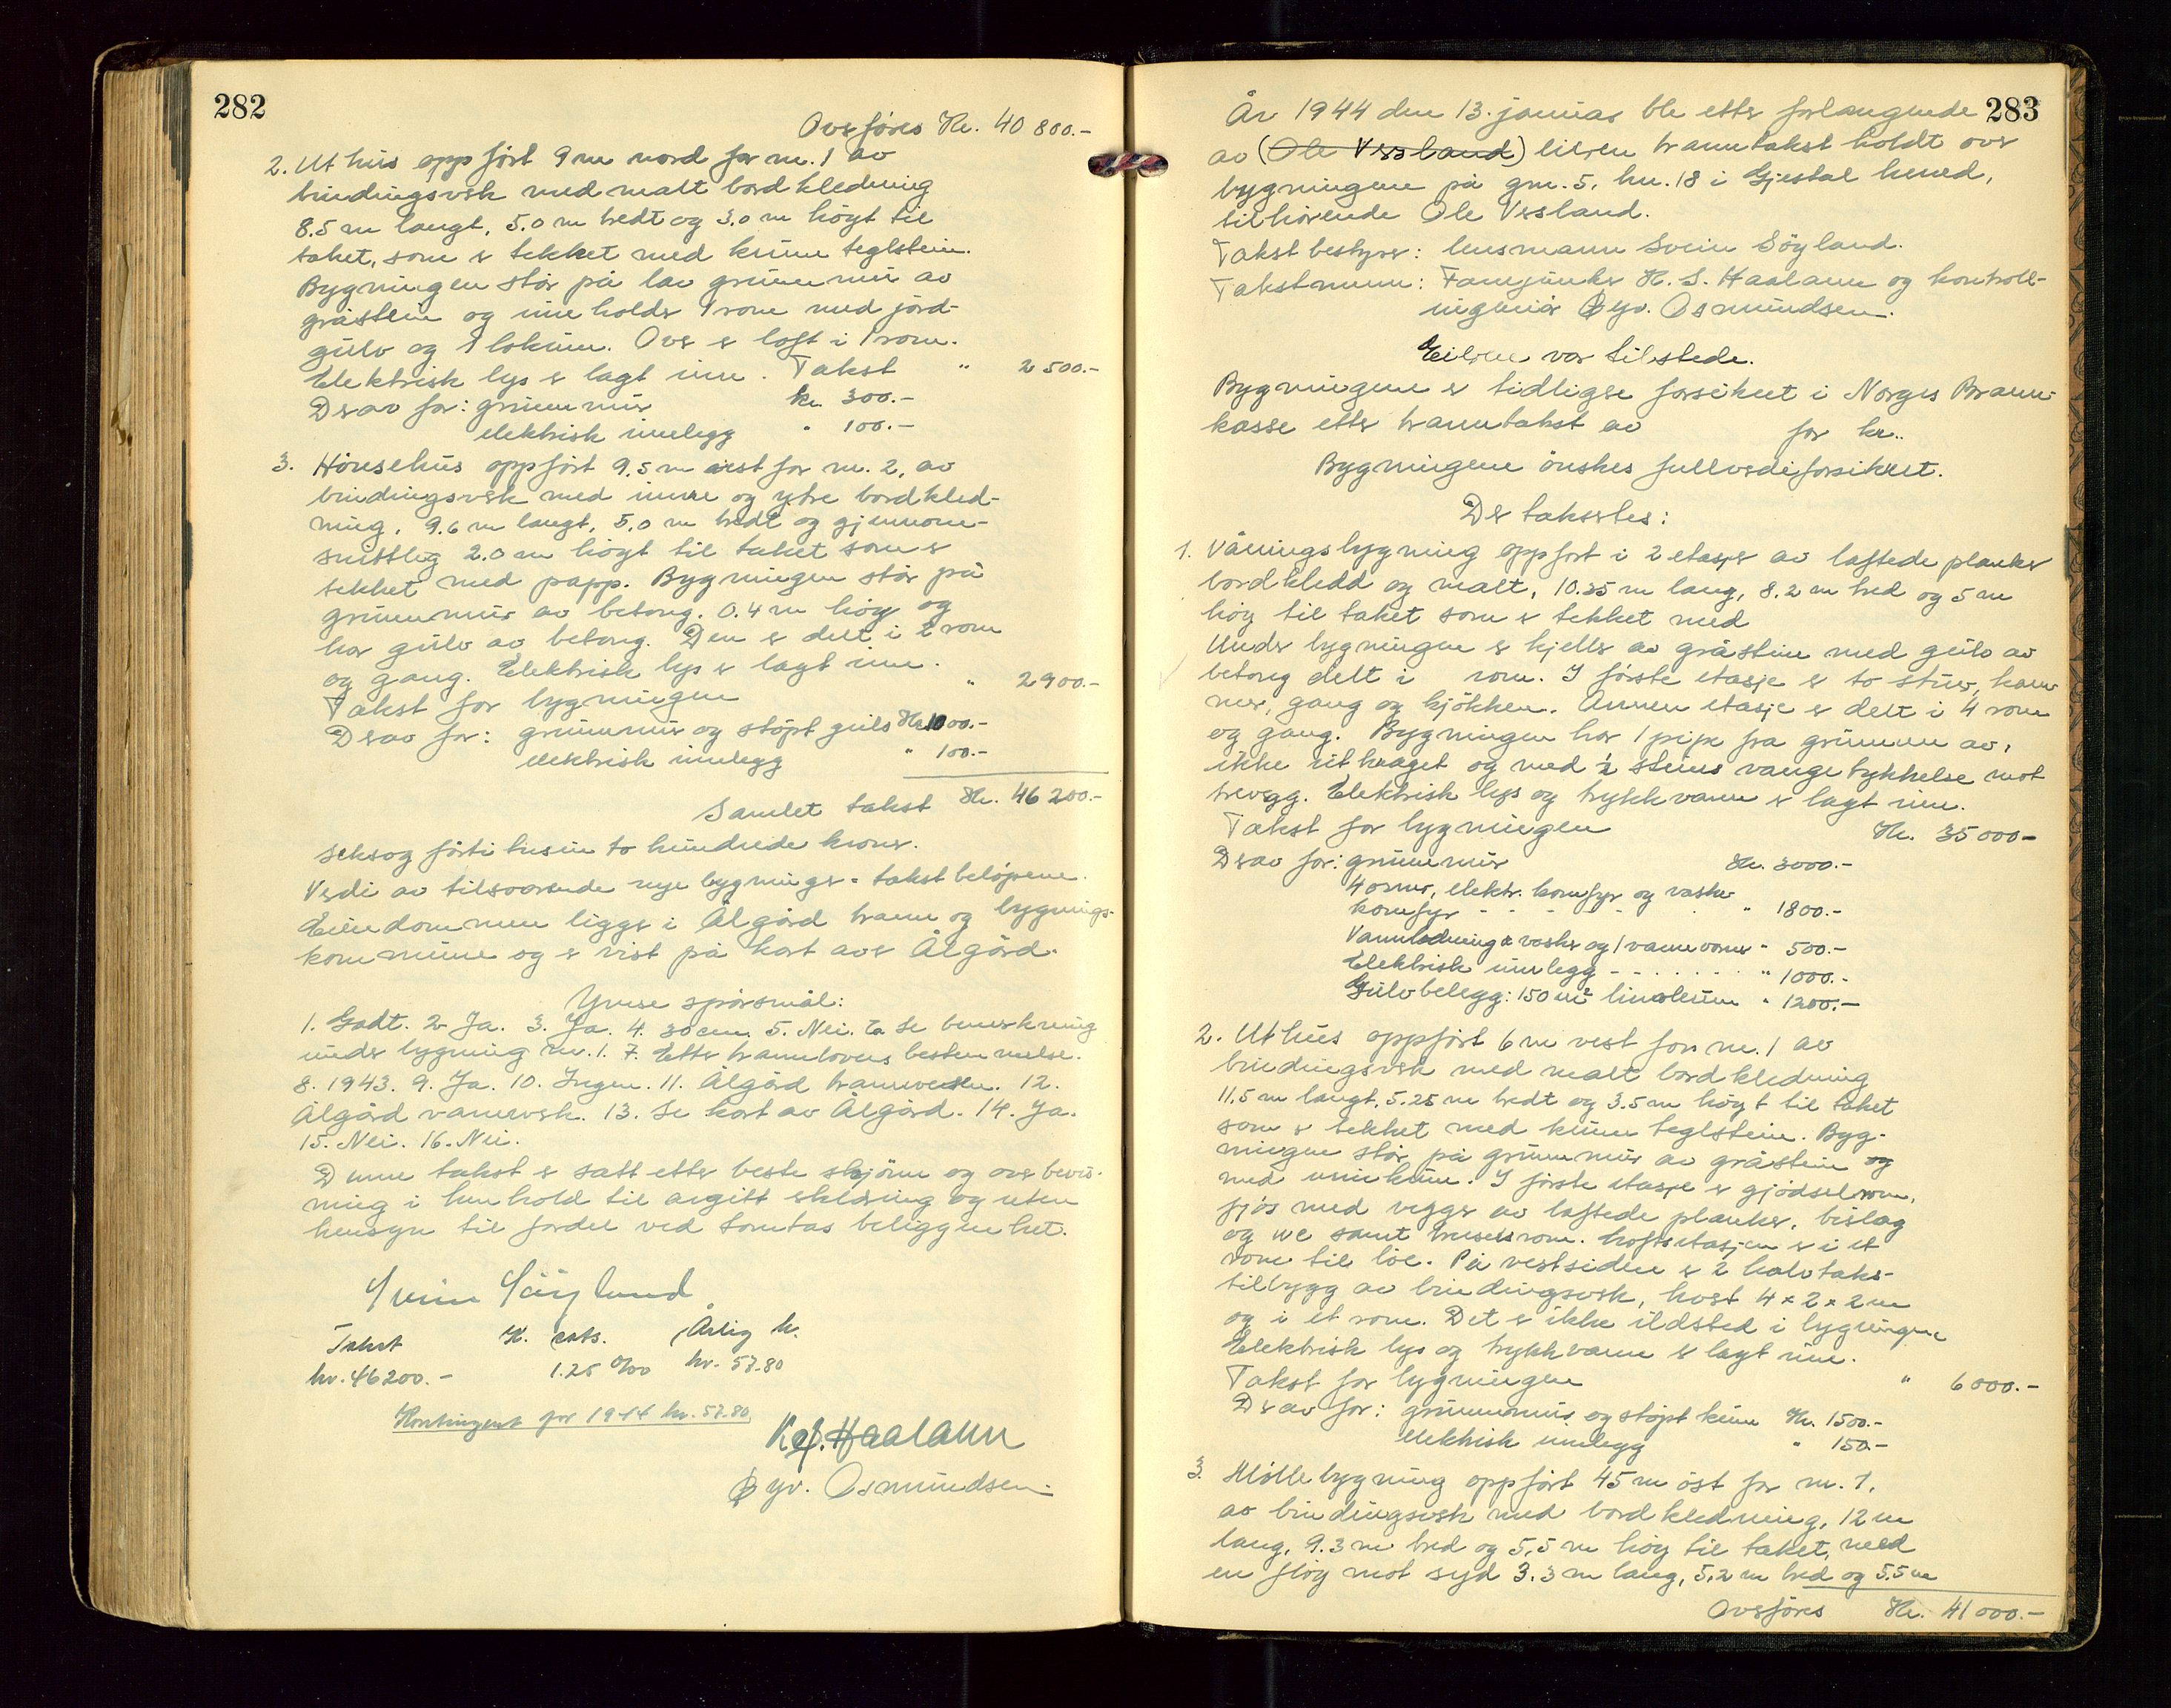 282
Overføres Kr. 40 800.-
2. Uthus oppført 9 m nord for nr. 1 av
bindingsverk med malt bordkledning
8.5 m langt, 5.0 m bredt og 3.0 m høyt til
taket, som er tekket med krum teglstein.
Bygningen står på lav grunnmur av
gråstein og inneholder 1 rom med jord-
gulv og 1 lokum. Over er loft i 1 rom.
Elektrisk lys er lagt inn. Takst " 2 500.-
Derav for: grunnmur kr. 300.-
elektrisk innlegg " 100.-
3. Hønsehus oppført 9.5 m vest for nr. 2, av
bindingsverk med innre og ytre bordkled-
ning, 9.6 m langt, 5.0 m bredt og gjennom-
snittlig 2.0 m høyt til taket som er
tekket med papp. Bygningen står på
grunnmur av betong. 0.4 m høy og
har gulv av betong. Den er delt i 2 rom
og gang. Elektrisk lys er lagt inn.
Takst for bygningen " 2 900.-
Derav for: grunnmur og støpt gulv Kr. 1000.-
elektrisk innlegg " 100.-
Samlet takst Kr. 46 200.-
seksogførti tusen to hundrede kroner.
Verdi av tilsvarende nye bygninger = takstbeløpene.
Eiendommen ligger i Ålgård brann og bygnings-
kommune og er vist på kart over Ålgård.
Ymse spørsmål:
1. Godt. 2 Ja. 3. Ja. 4. 30 cm. 5. Nei. 6. Se bemerkning
under bygning nr. 1. 7. Etter brannlovens bestemmelse.
8. 1943. 9. Ja. 10. Ingen. 11. Ålgård brannvesen. 12.
Ålgård vannverk. 13. Se kart av Ålgård. 14. Ja.
15. Nei. 16. Nei.
Denne takst er satt etter beste skjønn og overbevis-
ning i henhold til avgitt erklæring og uten
hensyn til fordel ved tomtas beliggenhet.
Svein Søyland
Takst Kl. cats. Årlig k.
kr. 46200.- 1.25 ‰ kr. 57.80
Kontingent for 1944 kr. 57.80
K. S. Haalann
Øyv. Osmundsen.
283
År 1944 den 13. januar ble etter forlangende
av (Ole Vesland) eieren branntakst holdt over
bygningene på gnr. 5, bnr. 18 i Gjestal herred,
tilhørende Ole Vesland.
Takstbestyrer: lensmann Svein Søyland.
Takstmenn: Fanejunker K. S. Haalann og kontroll-
ingeniør Øyv. Osmundsen.
Eieren var tilstede.
Bygningene er tidligere forsikret i Norges Brann-
kasse etter branntakst av for kr..
Bygningene ønskes fullverdiforsikret.
Der takseres:
1. Våningsbygning oppført i 2 etasjer av laftede planker
bordkledd og malt, 10.35 m lang, 8.2 m bred og 5 m
høy til taket som er tekket med
Under bygningen er kjeller av gråstein med gulv av
betong delt i rom. I første etasje er to stuer, kam-
mer, gang og kjøkken. Annen etasje er delt i 4 rom
og gang. Bygningen har 1 pipe fra grunnen av,
ikke utkraget og med ½ steins vangetykkelse mot
trevegg. Elektrisk lys og trykkvann er lagt inn.
Takst for bygningen Kr. 35 000-
Derav for: grunnmur Kr. 3000.-
4 ovner, elektr. komfyr og vaske
komfyr - - - - " 1800.-
Vannledning 2 vasker og 1 vannvarmer " 500.-
Elektrisk innlegg - - . . . . . . " 1000.-
Gulvbelegg: 150 m² linoleum " 1200.-
2. Uthus oppført 6 m vest for nr. 1 av
bindingsverk med malt bordkledning
11.5 m langt, 5.25 m bredt og 3.5 m høyt til taket
som er tekket med krum teglstein. Byg-
ningen står på grunnmur av gråstein og
med urinkum. I første etasje er gjødselrom,
fjøs med vegger av laftede planker, bislag
og wc samt brenselsrom. Loftsetasjen er i et
rom til løe. På vestsiden er 2 halvtaks-
tilbygg av bindingsverk, hvert 4 x 2 x 2 m
og i et rom. Det er ikke ildsted i bygningene
Elektrisk lys og trykkvann er lagt inn.
Takst for bygningen " 6 000.-
Derav for: grunnmur og støpt kum Kr. 1500.-
elektrisk innlegg " 150.-
3. Møllebygning oppført 45 m øst for nr. 1,
av bindingsverk med bordkledning, 12 m
lang, 9.3 m bred og 5,5 m høy til taket, med
en fløy mot syd 3.3 m lang, 5,2 m bred og 5.5 m
Overføres Kr. 41 000.-